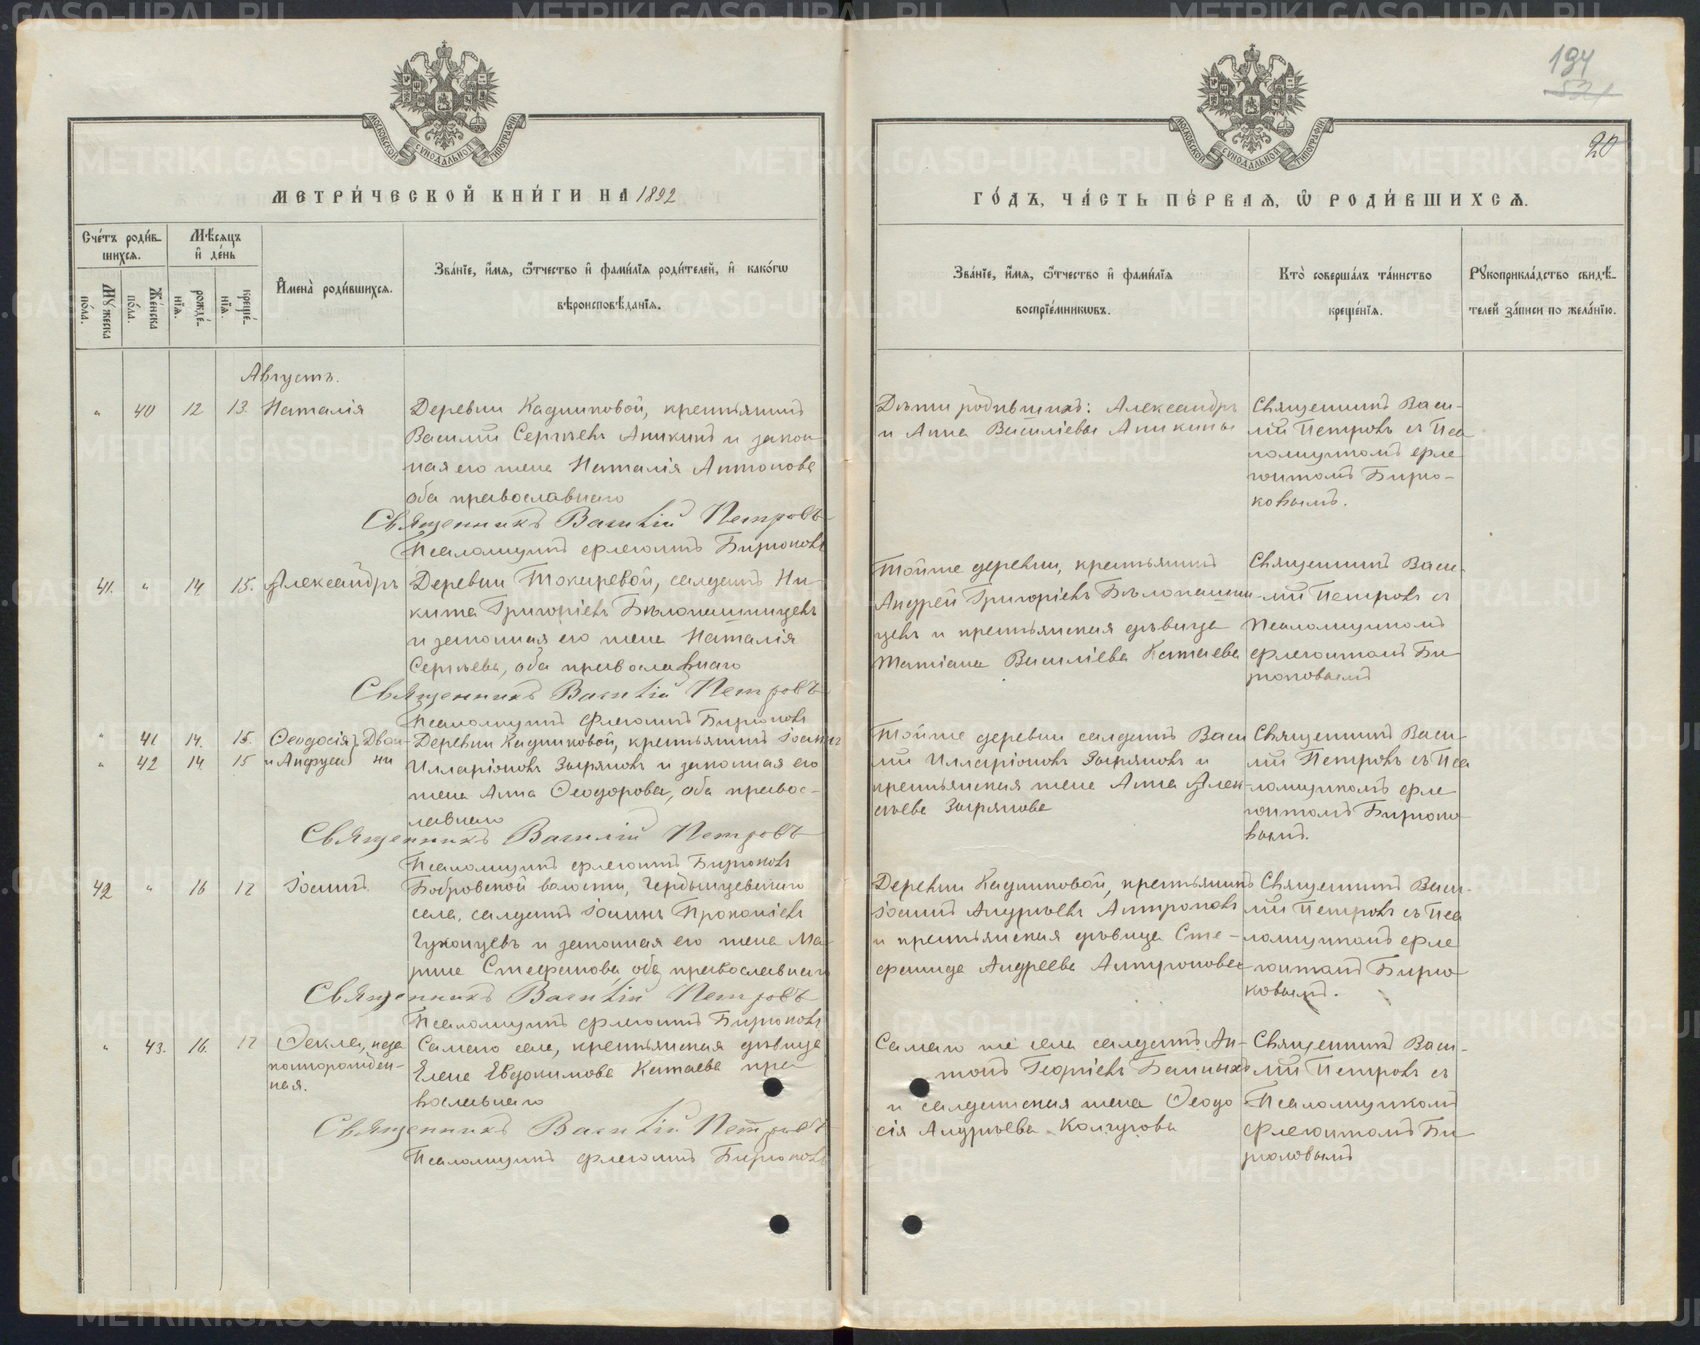 194
521
20
МОСКОВСКОЙ СѴНОДАЛЬНОЙ ТИПОГРАФІИ
МЕТРИ́ЧЕСКОЙ КНИ́ГИ НА 1892
ГО́ДЪ, ЧА́СТЬ ПЕ́РВАѦ, Ѡ҆ РОДИ́ВШИХСѦ.
Сче́тъ роди́в-
шихсѧ.
Мѣ́сѧцъ
и҆ де́нь
Мꙋжеска
по́ла.
Же́нска
по́ла.
рожде́-
нїѧ.
креще́-
нїѧ.
И҆мена̀ роди́вшихсѧ.
Зва́нїе, и҆́мѧ, ѻ҆́тчество и҆ фами́лїѧ роди́телей, и҆ како́гѡ
вѣроисповѣ́данїѧ.
Зва́нїе, и҆́мѧ, ѻ҆́тчество и҆ фами́лїѧ
воспрїе́мникѡвъ.
Кто̀ соверша́лъ та́инство
креще́нїѧ.
Рꙋкоприкла́дство свидѣ́-
телей за́писи по жела́нїю.
Августъ.
" 40 12 13. Наталія
Деревни Кадниковой, крестьянинъ
Василій Сергѣевъ Аникинъ и закон
ная его жена Наталія Антонова
оба православнаго
Священникъ Василій Петровъ
Псаломщикъ Флегонтъ Бирюковъ
Дѣти родившихъ: Александръ
и Анна Василіевы Аникины
Священникъ Васи-
лій Петровъ съ Пса
ломщикомъ Фле
гонтомъ Бирю-
ковымъ.
41. " 14 15. Александръ
Деревни Токаревой, солдатъ Ни-
кита Григоріевъ Бѣлопашинцевъ
и законная его жена Наталія
Сергѣева, оба православнаго
Священникъ Василій Петровъ
Псаломщикъ Флегонтъ Бирюковъ
Тойже деревни, крестьянинъ
Андрей Григоріевъ Бѣлопашин
цевъ и крестьянская дѣвица
Татіана Василіева Катаева
Священникъ Васи-
лій Петровъ съ
Псаломщикомъ
Флегонтомъ Би-
рюковымъ
" 41 14. 15. Ѳеодосія} Двой-
" 42 14 15 и Анфуса} ни
Деревни Кадниковой, крестьянинъ Іоаннъ
Илларіоновъ Зыряновъ и законная его
жена Анна Ѳеодорова, оба правос-
лавнаго
Священникъ Василій Петровъ
Псаломщикъ Флегонтъ Бирюковъ
Тойже деревни солдатъ Васи
лій Илларіоновъ Зыряновъ и
крестьянская жена Анна Алек-
сѣева Зырянова
Священникъ Васи-
лій Петровъ съ Пса
ломщикомъ Фле
гонтомъ Бирюко-
вымъ.
42 " 16 17 Іоаннъ
Бобровской волости,
села, солдатъ Іоаннъ Прокопіевъ
и законная его жена Ма
рина Стефанова, оба православнаго
Священникъ Василій Петровъ
Псаломщикъ Флегонтъ Бирюковъ
Деревни Кадниковой, крестьянинъ
Іоаннъ Андреевъ Антроповъ
и крестьянская дѣвица Сте-
фанида Андреева Антропова
Священникъ Васи-
лій Петровъ съ Пса
ломщикомъ Фле
гонтомъ Бирю-
ковымъ.
" 43. 16. 17 Ѳекла, неза
коннорожден-
ная.
Самаго села, крестьянская дѣвица
Елена Евдокимова Катаева пра
вославнаго
Священникъ Василій Петровъ
Псаломщикъ Флегонтъ Бирюковъ
Самаго же села солдатъ Ан-
тонъ Георгіевъ Банныхъ
и солдатская жена Ѳеодо
сія Андреева
Священникъ Васи-
лій Петровъ съ
Псаломщикомъ
Флегонтомъ Би-
рюковымъ
METRIKI.GASO-URAL.RU